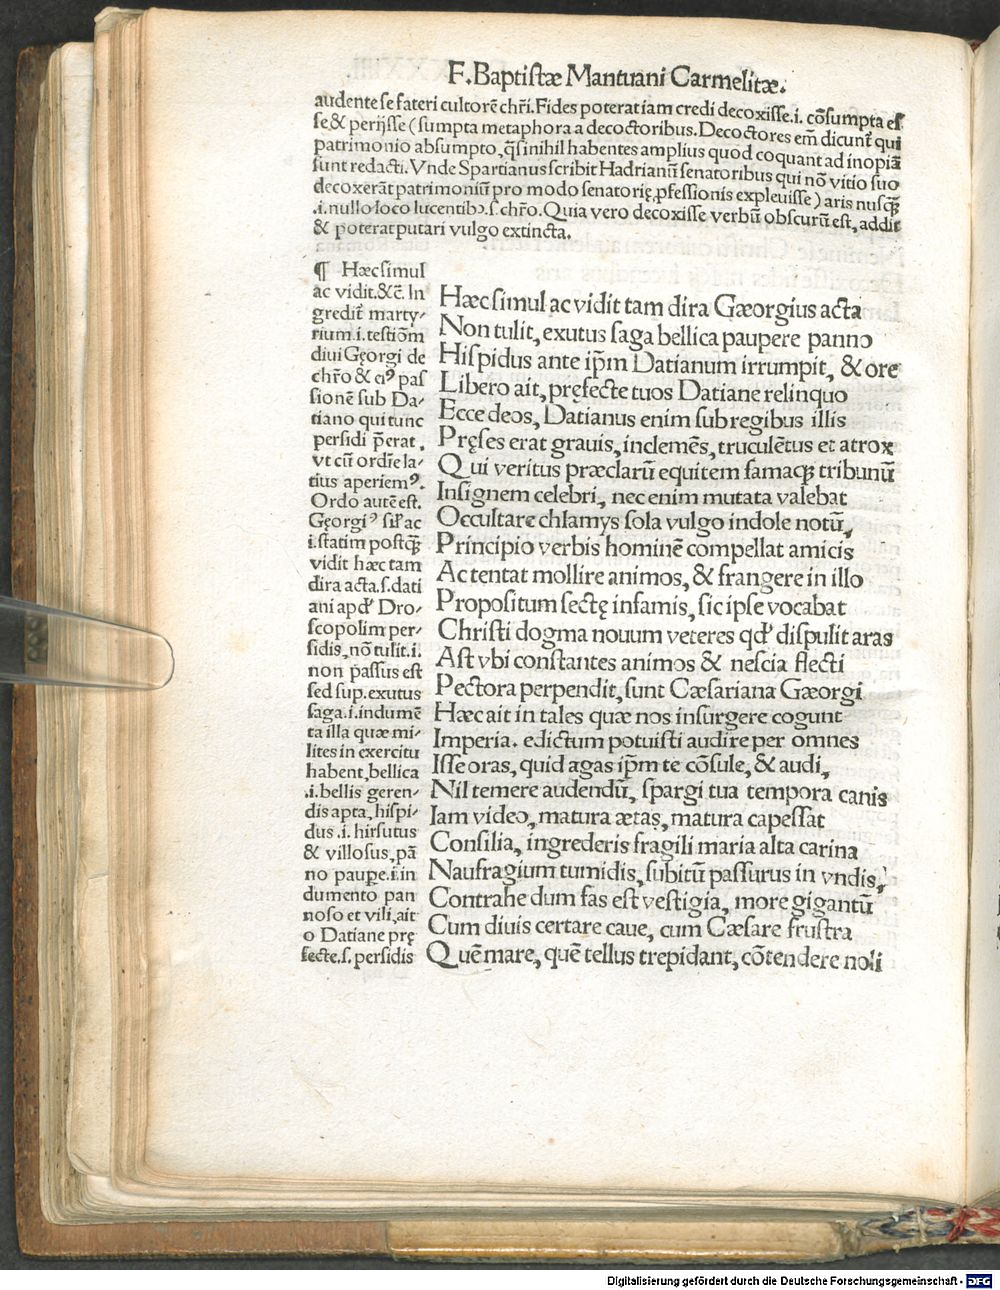 F. Baptistæ Mantuani Carmelitæ.
audente se fateri cultorē chr̄i. Fides poterat iam credi decoxisse.i. cōsumpta es
se,& perijsse (sumpta metaphora a decoctoribus. Decoctores em̄ dicunt᷑ qui
patrimonio absumpto, q̄si nihil habentes amplius quod coquant ad inopiā
sunt redacti. Vnde Spartianus scribit Hadrianū senatoribus qui nō vitio suo
decoxerāt patrimoniū pro modo senatorię ꝓfessionis expleuisse) aris nusq̄
.i. nullo loco lucentibꝰ.s. chr̄o. Quia vero decoxisse verbū obscurū est, addit
& poterat putari vulgo extincta.
¶ Hæc simul
ac vidit.&c̄. In
gredit᷑ marty-
rium.i. testiōm
diui Gęorgi de
chr̄o & eiꝰ pas
sionē sub Da-
tiano qui tunc
persidi p̄erat.
vt cū ordīe la-
tius aperiemꝰ.
Ordo autē est.
Gęorgiꝰ sil᷑ ac
.i. statim postq̄
vidit hæc tam
dira acta.s. dati
ani apđ Dro-
scopolim per-
sidis, nō tulit.i.
non passus est
sed sup. exutus
saga.i. indumē
ta illa quæ mi-
lites in exercitu
habent, bellica
.i. bellis geren-
dis apta, hispi-
dus .i. hirsutus
& villosus, pā
no paupe̱.i. in
dumento pan
noso et vili, ait
o Datiane prę
fecte.s. persidis
Hæc simul ac vidit tam dira Gæorgius acta
Non tulit, exutus saga bellica paupere panno
Hispidus ante ip̄m Datianum irrumpit, & ore
Libero ait, pręfecte tuos Datiane relinquo
Ecce deos, Datianus enim sub regibus illis
Pręses erat grauis, inclemēs, truculētus et atrox
Qui veritus præclarū equitem famaqꝫ tribunū
Insignem celebri, nec enim mutata valebat
Occultare chlamys sola vulgo indole notū,
Principio verbis hominē compellat amicis
Ac tentat mollire animos, & frangere in illo
Propositum sectę infamis, sic ipse vocabat
Christi dogma nouum veteres qđ dispulit aras
Ast vbi constantes animos & nescia flecti
Pectora perpendit, sunt Cæsariana Gæorgi
Hæc ait in tales quæ nos insurgere cogunt
Imperia. edictum potuisti audire per omnes
Isse oras, quid agas ip̄m te cōsule, & audi,
Nil temere audendū, spargi tua tempora canis
Iam video, matura ætas, matura capessat
Consilia, ingrederis fragili maria alta carina
Naufragium tumidis, subitū passurus in vndis,
Contrahe dum fas est vestigia, more gigantū
Cum diuis certare caue, cum Cæsare frustra
Quē mare, quē tellus trepidant, cōtendere noli
Digitalisierung gefördert durch die Deutsche Forschungsgemeinschaft - DFG